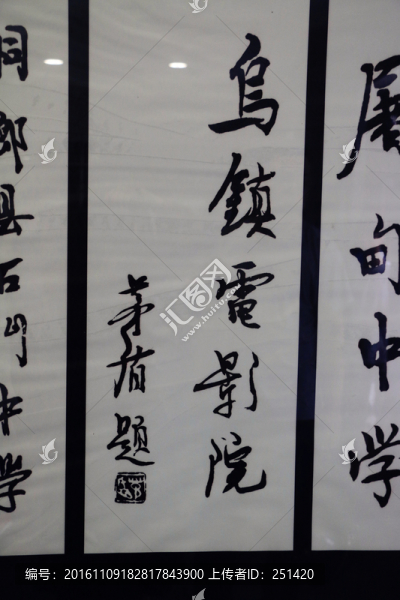 屠甸中学
乌鎮電影院
茅盾题
桐鄉县石门中学
汇图网
www.huitu.com
编号：20161109182817843900 上传者ID：251420